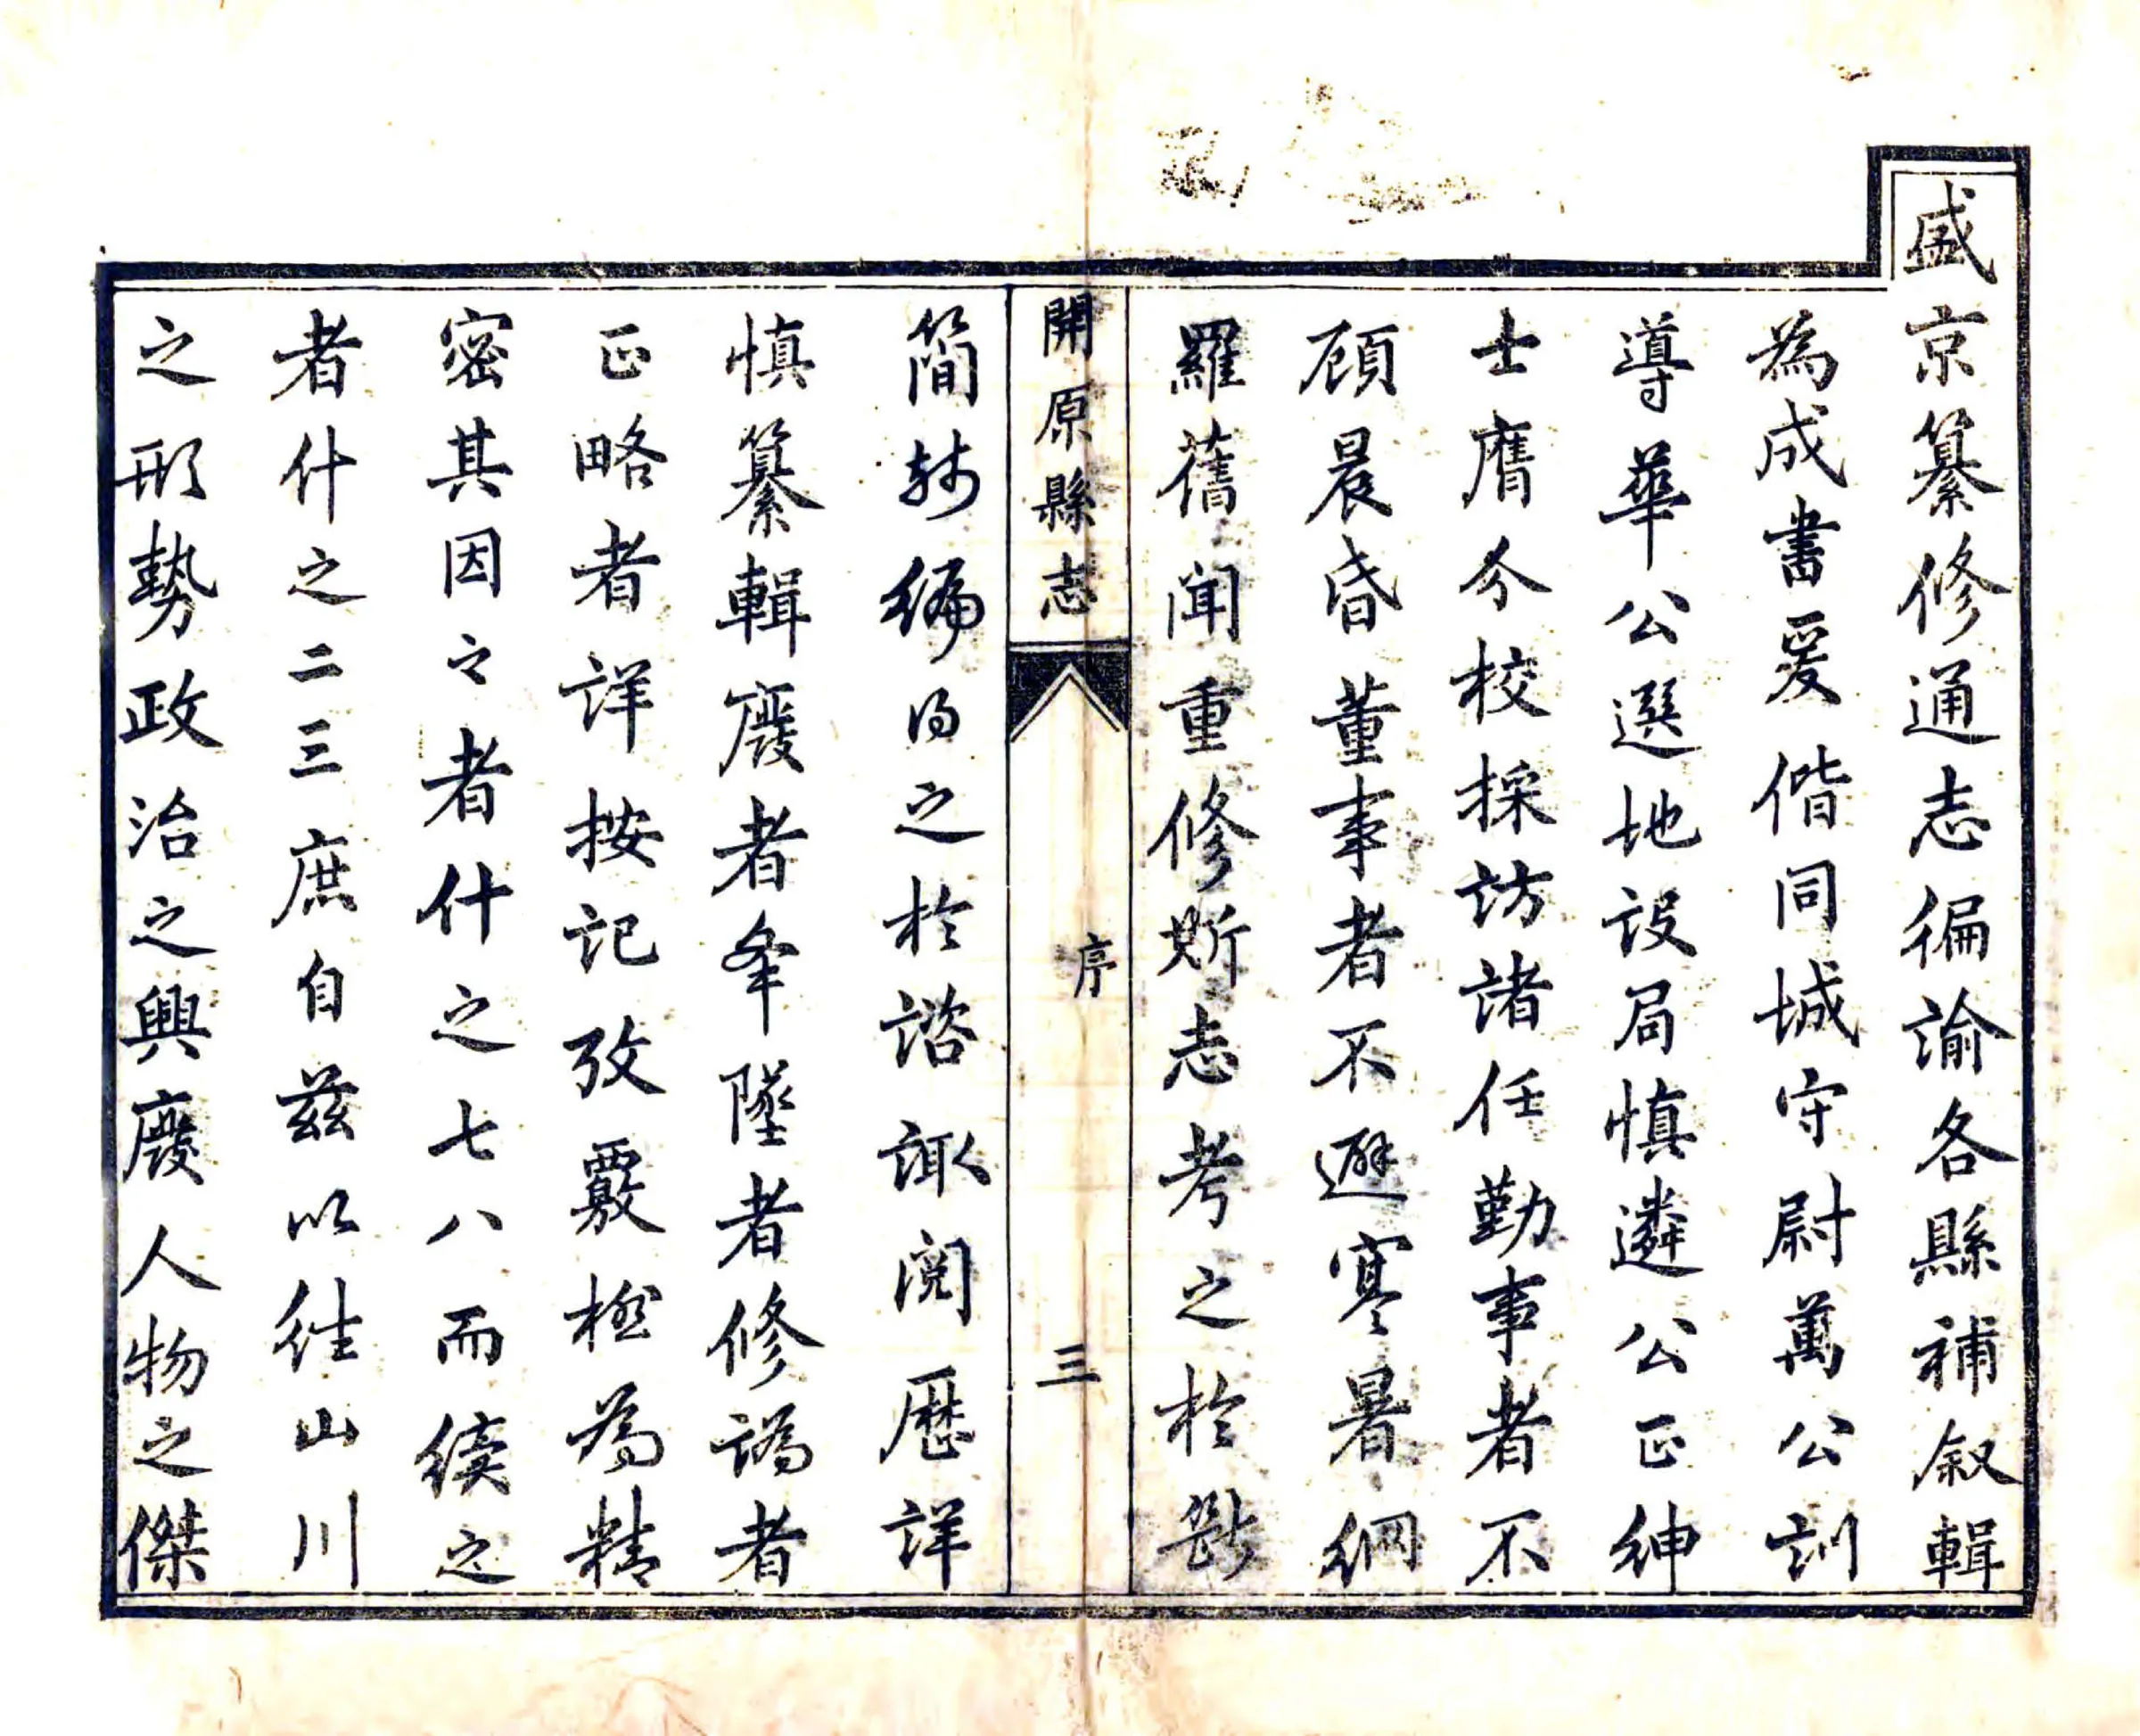 盛京纂修通志徧諭各縣補叙輯
為成書爰偕同城守尉萬公訓
導華公選地設局慎遴公正紳
士膺分校採訪諸任勤事者不
顧晨昏董事者不避寒暑網
羅舊聞重修斯志考之於斷
開原縣志
序
三
簡殘編得之於諮諏閱歷詳
慎纂輯廢者舉墜者修譌者
正略者詳按記攷覈極為精
密其因之者什之七八而續之
者什之二三庶自茲以往山川
之形勢政治之興廢人物之傑